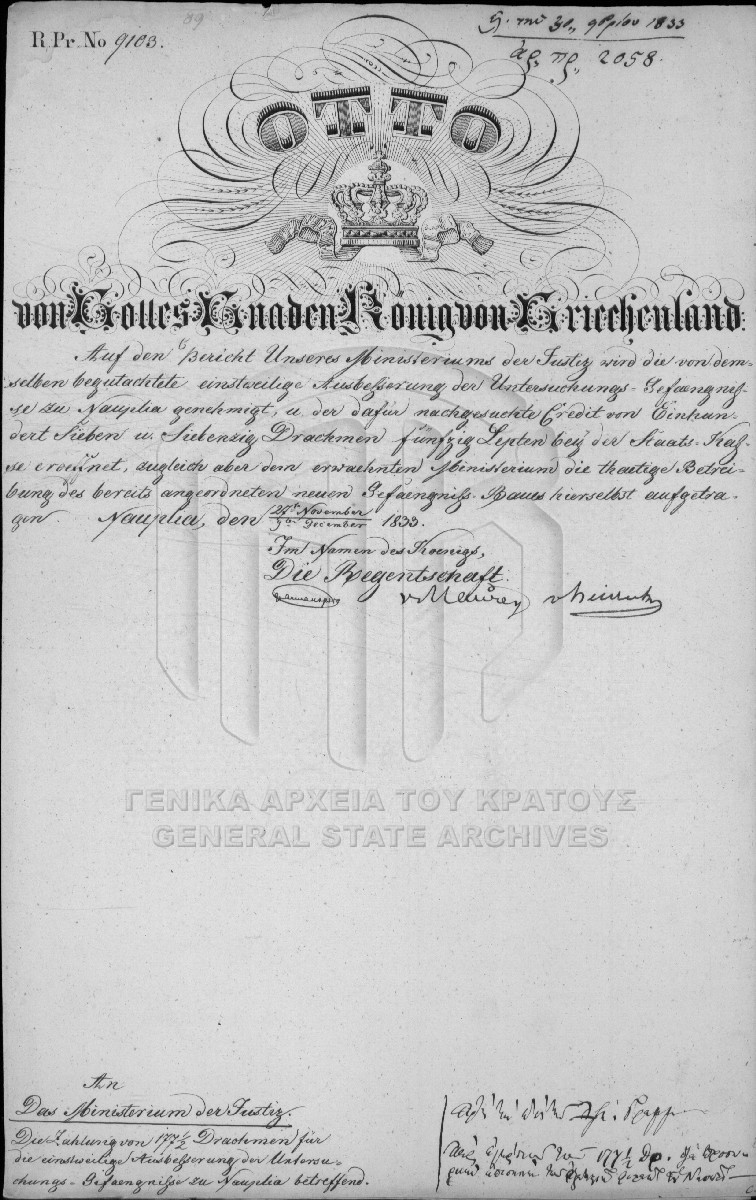 R. Pr. No 9103.
ἐλ. τὴν 30 9βρίου 1833
ἀρ. πρ. 2058.
OTTO
von Gottes Gnaden König von Griechenland.
Auf den Bericht Unseres Ministeriums der Justiz wird die von dem-
selben begutachtete einstweilige Ausbesserung der Untersuchungs-Gefaengnis-
se zu Nauplia genehmigt, u. der dafür nachgesuchte Credit von Einhun-
dert Sieben u. Siebenzig Drachmen fünfzig Lepten bey der Staats-Kas-
se eroefnet, zugleich aber dem erwaehnten Ministerium die thaetige Betrei-
bung des bereits angeordneten neuen Gefaengniss-Baues hierselbst aufgetra-
gen Nauplia, den November
December 1833.
Im Namen des Koenigs,
Die Regentschaft.
v Maurer v Heideck
ΓΕΝΙΚΑ ΑΡΧΕΙΑ ΤΟΥ ΚΡΑΤΟΥΣ
GENERAL STATE ARCHIVES
An
Das Ministerium der Justiz.
Die Zahlung von 177 1/2 Drachmen für
die einstweilige Ausbesserung der Untersu-
chungs-Gefaengnisse zu Nauplia betreffend.
177 1/2 Δρ.